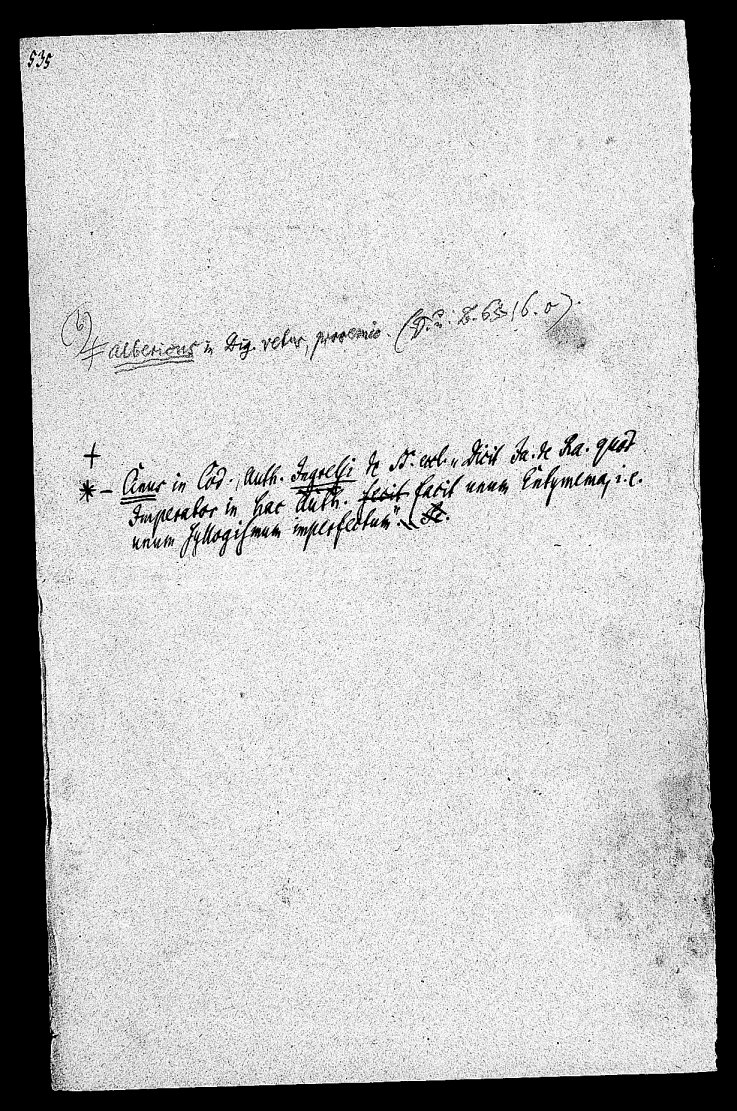 535
Albericus in Dig. vetus, prooemio.
+
* – Cinus in Cod., Auth. Ingressi de SS. eccl. „Dicit Ja. de Ra. quod
Imperator in hac Auth. fecit facit unum Entymema, i. e.
unum syllogismum imperfectum“.